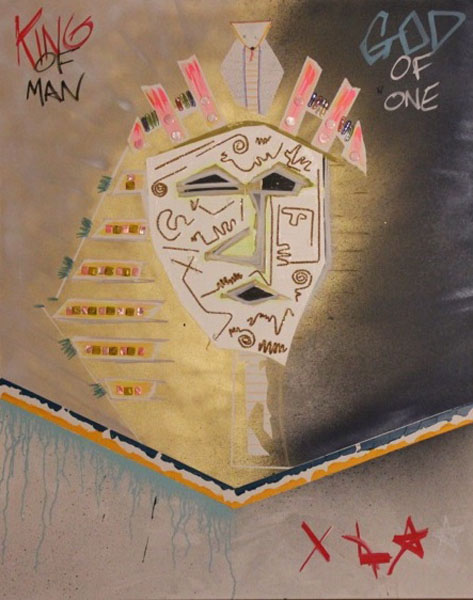 KING
OF
MAN
GOD
OF
ONE